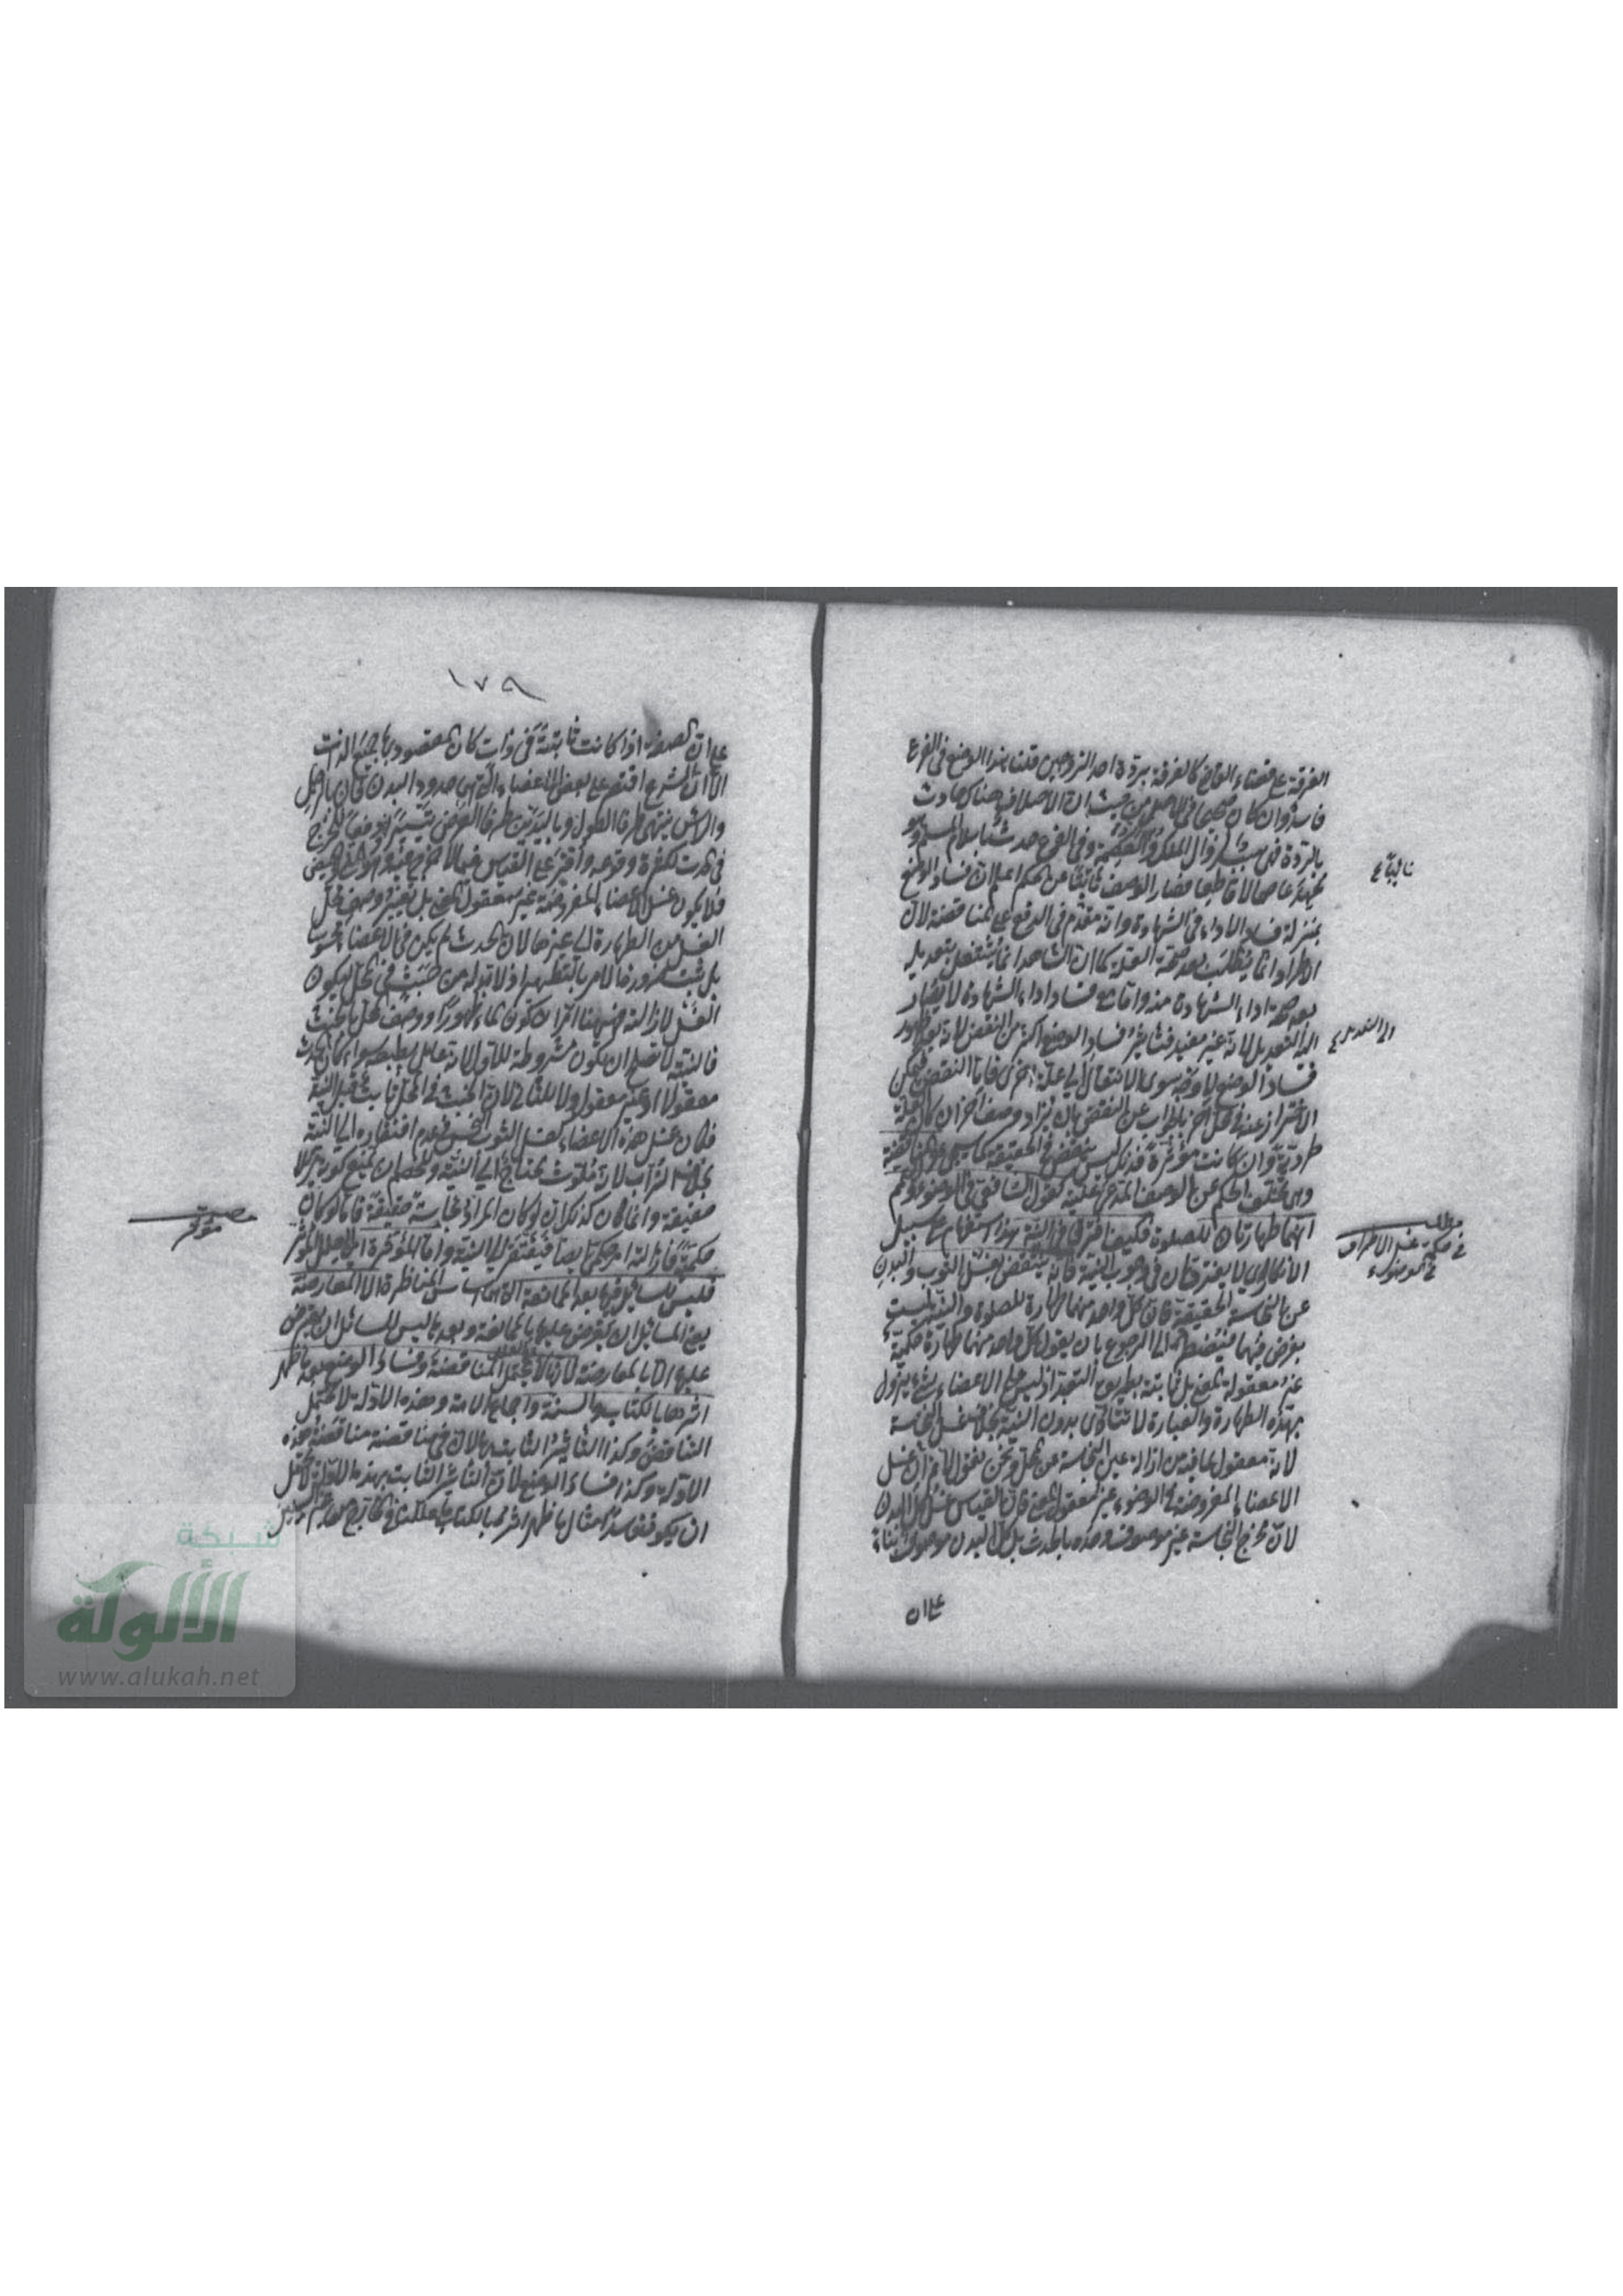 الفرقة على قضاء القاضي كالفرقة بردة احد الزوجين قلنا هذا الوضع في الفرع
فاسد وان كان صحيحا في الاصل من حيث ان الاختلاف هناك حادث
بالردة فهي سبب لزوال الملك والعصمة وفي الفرع حدث باسلام المسلم وهو
عاصما لا قاطعا فصار الوصف نابيا عن الحكم اعلم ان فساد الوضع
بمنزلة فساد الاداء في الشهادة وانه مقدم في الدفع على المناقضة لان
الاطراد انما يطلب بعد صحة العلة كما ان الشاهد انما يشتغل بتعديله
بعد صحة اداء الشهادة منه واما مع فساد اداء الشهادة لا يصار
الى التعديل لانه غير مفيد فتأثير فساد الوضع اكثر من النقض لانه بعد ظهور
فساد الوضع لا وجه سوى الانتقال الى علة اخرى فاما النقض فيمكن
الاحتراز عنه في محل آخر بالجواب عن النقض بان يزاد وصف آخر ان كان علة
طردية وان كانت مؤثرة فذلك ليس بنقض في الحقيقة كما سيجيء والمناقضة
وهي تخلف الحكم عن الوصف المدعى علية كقول الشافعي في الوضوء والتيمم
انهما طهارتان للصلوة فكيف افترقا في النية هذا استفهام على سبيل
الانكار اي لا يفترقان في وجوب النية فانه ينتقض بغسل الثوب والبدن
عن النجاسة الحقيقية فان كل واحد منهما طهارة للصلوة والنية ليست
بفرض فيهما فيضطر الى الرجوع بان يقول كل واحد منهما طهارة حكمية
غير معقولة المعنى بل ثابتة بطريق التعبد اذ ليس على الاعضاء شيء يزول
بهذه الطهارة والعبادة لا تتأدى بدون النية بخلاف غسل النجاسة
لانه معقول لما فيه من ازالة عين النجاسة عن المحل ونحن نقول لا نم ان غسل
الاعضاء المفروضة في الوضوء غير معقول المعنى فان القياس غسل كل البدن
لان مخرج النجاسة غير موصوف وحده بالحدث بل كل البدن موصوف بناء
على ان
نابيا ع
الى التعديل ع
مطلب
في حكمة غسل الاطراف
في الوضوء
١٧٩
على ان الصفة اذا كانت ثابتة في ذات كان المقصود بها جميع الذات
الا ان الشرع اقتصر على بعض الاعضاء التي هي حدود البدن فان بالرجل
والرأس ينتهي طرفا الطول وباليدين طرفا العرض تيسيرا ودفعا للحرج
في الحدث لكثرة وقوعه واقر على القياس فيما لا حرج فيه وهو المني والحيض
فلا يكون غسل الاعضاء المفروضة غير معقول المعنى بل تغيير وصف محل
الغسل من الطهارة الى غيرها لان الحدث لم يكن في الاعضاء محسوسا
بل ثبت ضرورة الامر بالتطهير اذ لا بد له من خبث في المحل ليكون
الغسل لازالته فههنا امران كون الماء طهورا ووصف المحل بالخبث
فالنية لا تصلح ان تكون مشروطة للاول لانه عامل بطبعه سواء كان الحدث
معقولا او غير معقول ولا للثاني لان الخبث في المحل ثابت قبل النية
فكان غسل هذه الاعضاء كغسل الثوب النجس في عدم افتقاره الى النية
بخلاف التراب لانه ملوث يحتاج الى النية وللخصم ان يمنع كونه مزيلا
حقيقة وانما كان كذلك ان لو كان المراد نجاسة حقيقية فاما لو كان
حكمية فازالته امر حكمي ايضا فيفتقر الى النية واما المؤثرة اي العلل المؤثرة
فليس للسائل فيها بعد الممانعة التي هي اساس المناظرة الا المعارضة
يعني للسائل ان يعترض عليها بالممانعة وبعدها ليس للسائل ان يعترض
عليها الا بالمعارضة لانها لا تحتمل المناقضة وفساد الوضع بعد ما ظهر
اثرها بالكتاب والسنة واجماع الامة وهذه الادلة لا تحتمل
التناقض وكذا التأثير الثابت بها لان في مناقضته مناقضة هذه
الادلة وكذا فساد الوضع لان التأثير الثابت بهذه الادلة لا يحتمل
ان يكون فاسدا مثال ما ظهر اثره بالكتاب
شبكة
الألوكة
www.alukah.net